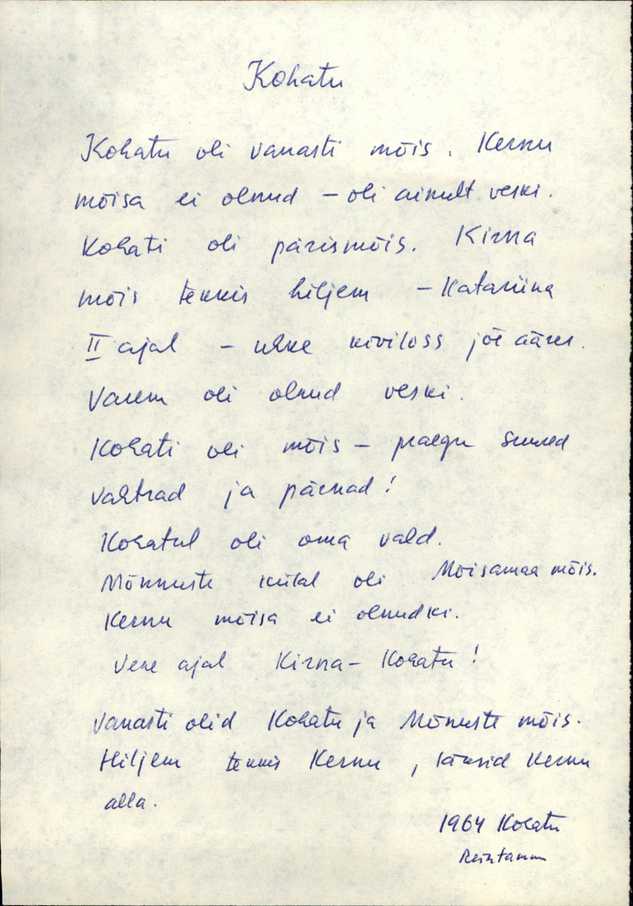 Kohatu
Kohatu oli vanasti mõis. Kernu
mõisa ei olnud – oli ainult veski.
Kohati oli pärismõis. Kirna
mõis tekkis hiljem – Katariina
II ajal – uhke kiviloss jõe ääres.
Varem oli olnud veski.
Kohati oli mõis – praegu suured
vahtrad ja pärnad!
Kohatul oli oma vald.
Mõnuste külal oli Mõisamaa mõis.
Kernu mõisa ei olnudki.
Vene ajal Kirna-Kohatu!
Vanasti olid Kohatu ja Mõnuste mõis.
Hiljem tekkis Kernu, läksid Kernu
alla.
1964 Kohatu